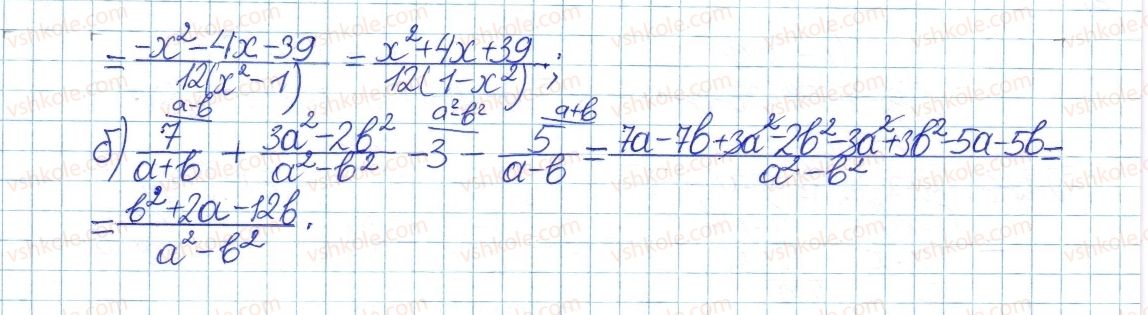 = (-x² - 4x - 39)/(12(x² - 1)) = (x² + 4x + 39)/(12(1 - x²));
б) 7/(a+b) ^(a-b) + (3a² - 2b²)/(a² - b²) - 3 ^(a²-b²) - 5/(a-b) ^(a+b) = (7a - 7b + 3a² - 2b² - 3a² + 3b² - 5a - 5b)/(a² - b²) =
= (b² + 2a - 12b)/(a² - b²).